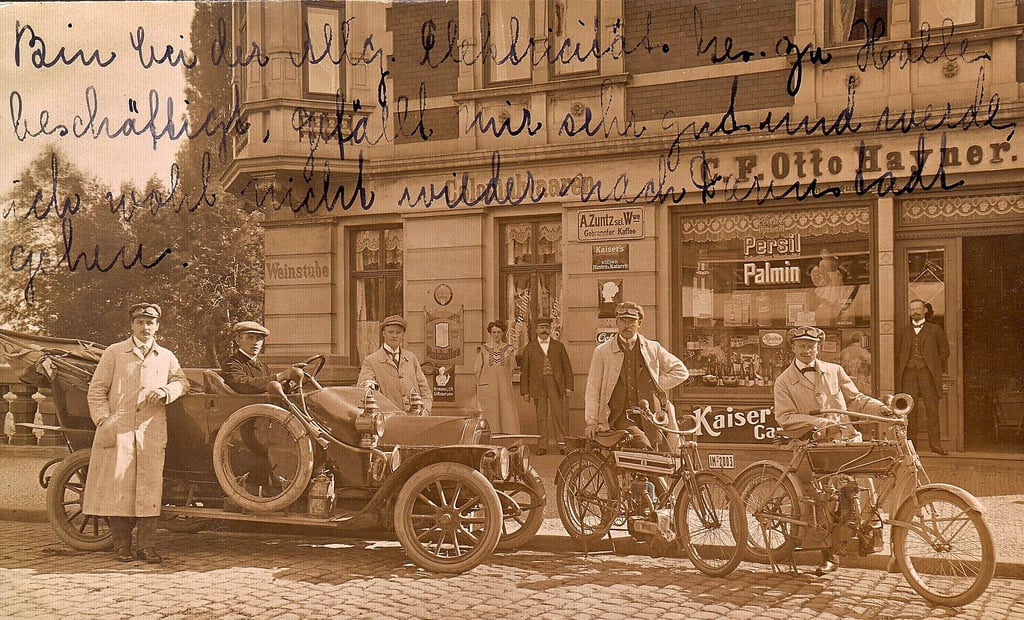 Bin bei der Allg. Elektricität. Ges. zu Halle
beschäftigt, gefällt mir sehr gut und werde
ich wohl nicht wieder nach Darmstadt
gehen.
C. F. Otto Hayner.
A. Zuntz sel. Wwe
Gebrannter Kaffee
Kaiser's
Weinstube
Persil
Palmin
Kaiser's
IM-2003